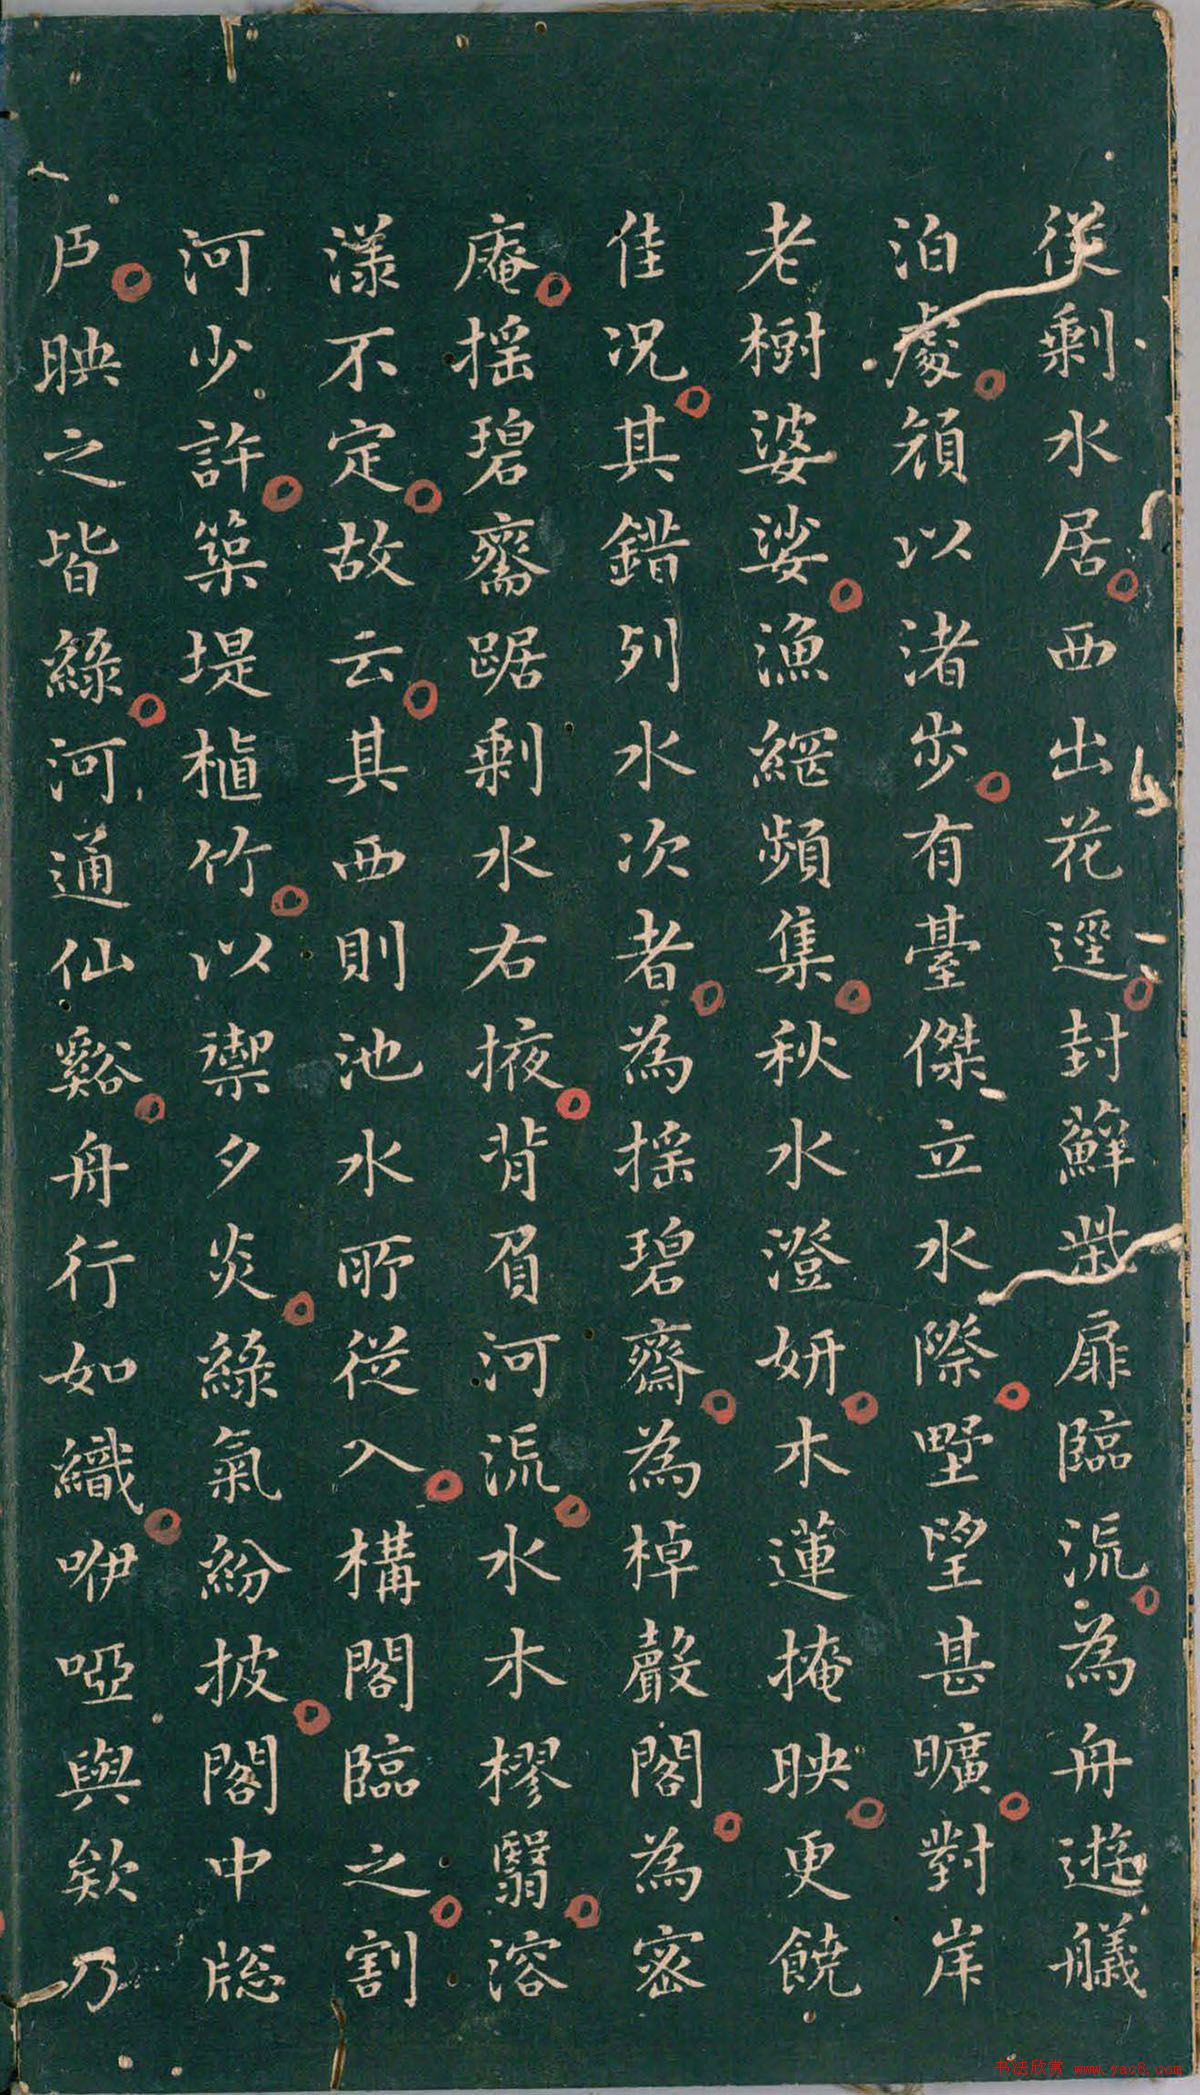 從剩水居西出花逕封蘚柴扉臨流為舟遊艤
泊處頎以渚步有臺傑立水際墅望甚曠對岸
老樹婆娑漁網頻集秋水澄妍木蓮掩映更饒
佳況其錯列水次者為摇碧齋為棹聲閣為密
庵摇碧齋踞剩水右掖背眉河流水木樛翳溶
漾不定故云其西則池水所從入構閣臨之割
河少許築堤植竹以禦夕炎綠氣紛披閣中牎
戶映之皆綠河通仙谿舟行如織咿啞與欸乃
书法欣赏 www.yac8.com